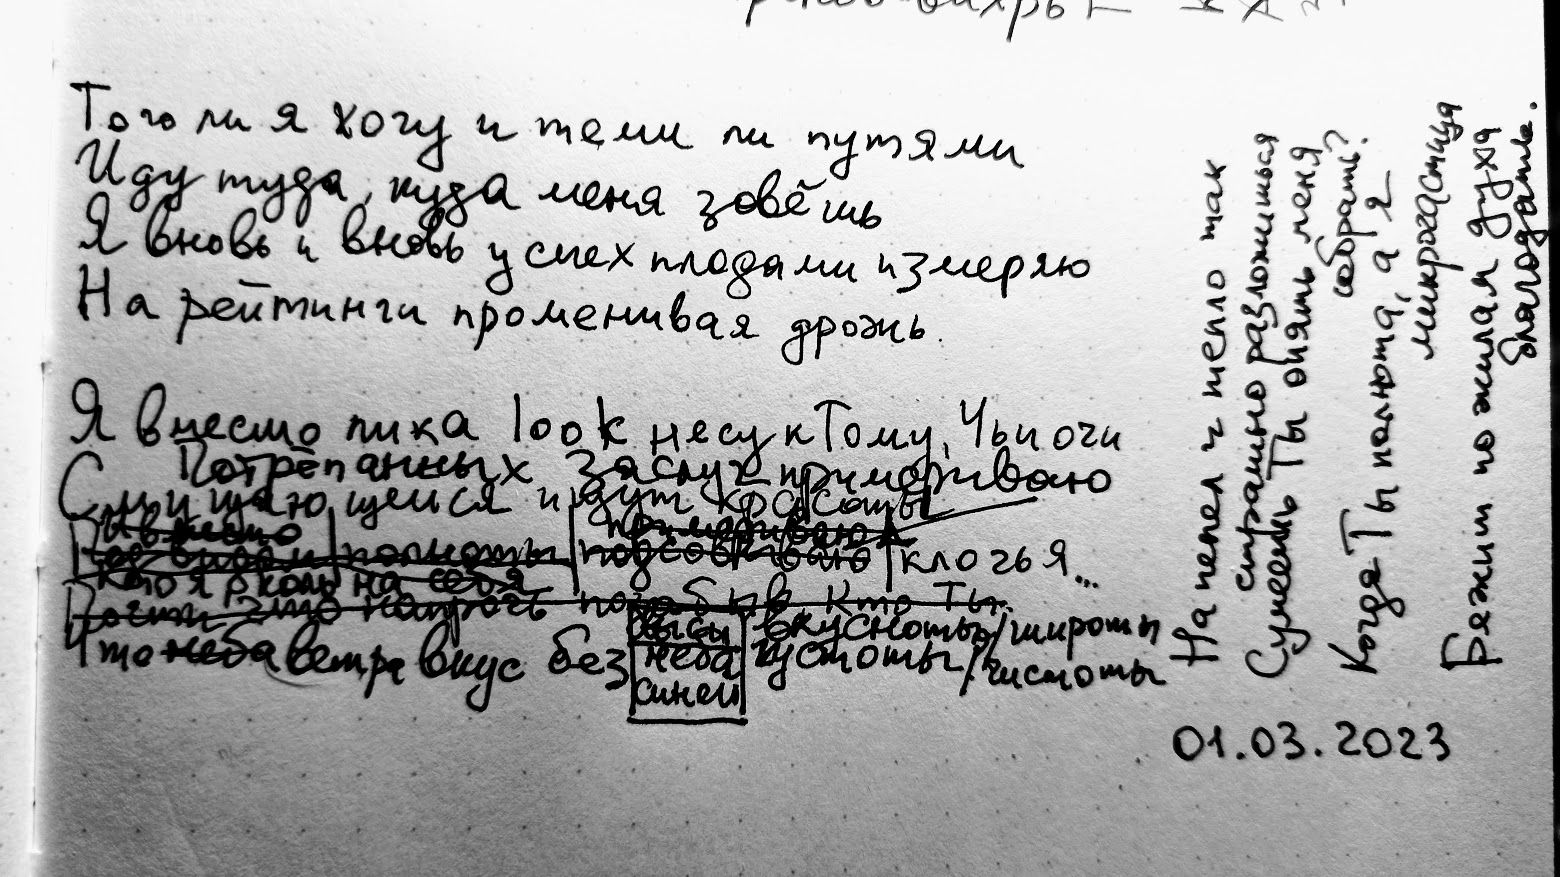 Того ли я хочу и теми ли путями
Иду туда, куда меня зовёшь
Я вновь и вновь успех плодами измеряю
На рейтинги променивая дрожь.
Я вместо лика look несу к Тому, Чьи очи
Потрёпанных заслуг примериваю
С мищающейся идут красоты
примериваю
полноты подсовываю клочья...
кто я, коль на себя
Почти это напрочь позабыв, Кто Ты
Что неба ветра вкус без
выси
неба
синей
вкусноты/широты
густоты/чистоты
На пепел и тепло так
странно разложиться
Сумеешь Ты опять меня
собрать?
Когда Ты полнота, а я
микрочастица
Бежит по жилам духа
благодать.
01.03.2023